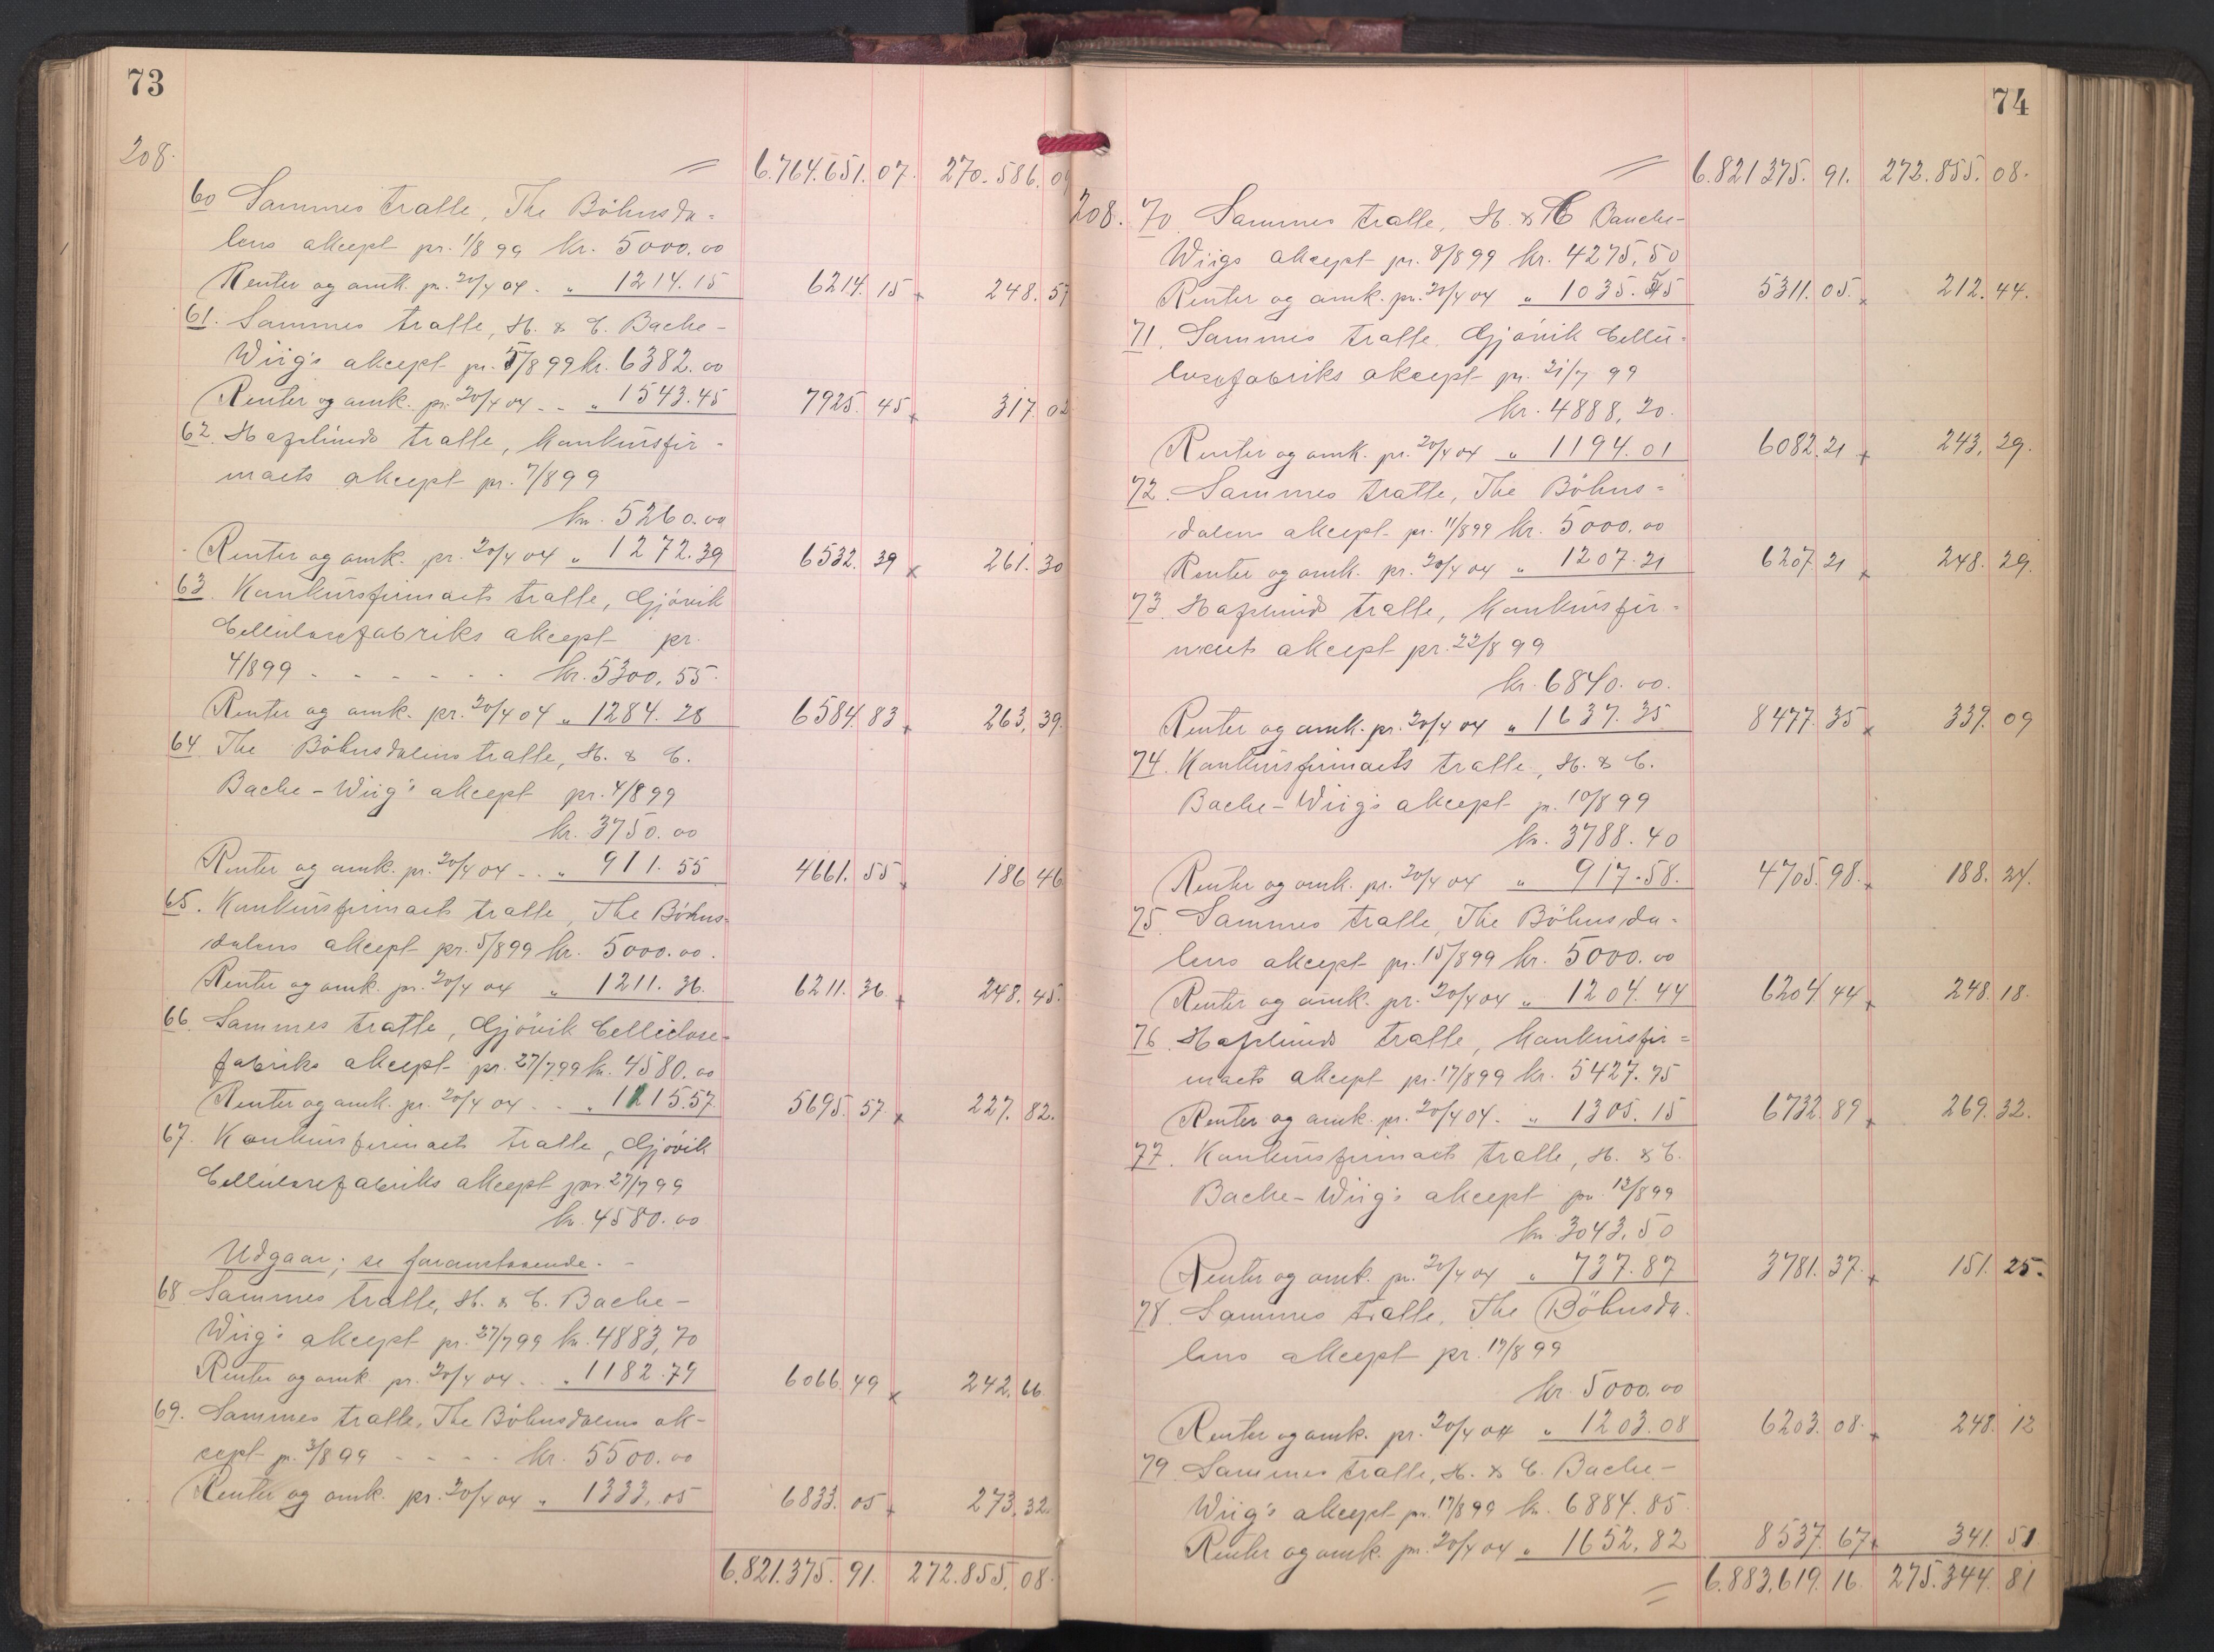 73
208.
6.764.651. 07. 270.586. 09
60 Sammes tratte, The Böhnsda-
lens akcept pr. 1/8 99 kr. 5000.00
Renter og omk. pr. 20/4 04 - „ 1214.15 6214. 15 248. 57
61. Sammes tratte, H. & C. Bache-
Wiig's akcept pr. 5/8 99 kr. 6382.00
Renter og omk. pr. 20/4 04 - - „ 1543.45 7925. 45 317. 02
62. Hafslunds tratte, konkursfir-
maets akcept pr. 7/8 99
kr. 5260.00
Renter og omk. pr. 20/4 04 „ 1272.39 6532. 39 261. 30
63. Konkursfirmaets tratte, Gjövik
Cellulosefabriks akcept pr.
4/8 99 - - - - - - kr. 5300.55.
Renter og omk. pr. 20/4 04 „ 1284.28 6584. 83 263. 39.
64. The Böhnsdalens tratte, H. & C.
Bache-Wiig's akcept pr. 4/8 99
kr. 3750.00
Renter og omk. pr. 20/4 04 - . „ 911.55 4661. 55 186 46
65. Konkursfirmaets tratte, The Böhns-
dalens akcept pr. 5/8 99 kr. 5000.00.
Renter og omk. pr. 20/4 04 „ 1211.36. 6211. 36 248. 45.
66. Sammes tratte, Gjövik Cellulose-
fabriks akcept pr. 27/7 99 kr. 4580.00
Renter og omk. pr. 20/4 04 - . „ 1115.57 5695. 57 227. 82.
67. Konkursfirmaets tratte, Gjövik
Cellulosefabriks akcept pr. 27/7 99
kr. 4580.00
Udgaar; se foranstaaende. -
68 Sammes tratte, H. & C. Bache-
Wiig's akcept pr. 27/7 99 kr. 4883,70
Renter og omk. pr. 20/4 04 - . „ 1182.79 6066. 49 242. 66
69. Sammes tratte, The Böhnsdalens ak-
cept pr. 3/8 99 - - - - kr. 5500.00
Renter og omk. pr. 20/4 04 „ 1333.05 6833. 05 273. 32.
6.821.375. 91. 272.855. 08.
74
6.821375. 91. 272.855. 08.
208. 70. Sammes tratte, H. & C Bache-
Wiigs akcept pr. 8/8 99 kr. 4275,50
Renter og omk. pr. 20/4 04 „ 1035.55 5311. 05. 212. 44.
71. Sammes tratte, Gjövik Cellu-
losefabriks akcept pr. 21/7 99
kr. 4888,20.
Renter og omk. pr. 20/4 04 „ 1194.01 6082. 21 243. 29.
72. Sammes tratte, The Böhns-
dalens akcept pr. 11/8 99 kr. 5000.00
Renter og omk. pr. 20/4 04 „ 1207.21 6207. 21 248. 29.
73. Hafslunds tratte, konkursfir-
maets akcept pr. 22/8 99
kr. 6840.00.
Renter og omk. pr. 20/4 04 „ 1637.35 8477. 35 339. 09
74. Konkursfirmaets tratte, H. & C.
Bache-Wiig's akcept pr. 10/8 99
kr. 3788.40
Renter og omk. pr. 20/4 04 „ 917.58. 4705. 98. 188. 24.
75. Sammes tratte, The Böhnsda-
lens akcept pr. 15/8 99 kr. 5000.00
Renter og omk. pr. 20/4 04 „ 1204.44 6204. 44 248. 18.
76. Hafslunds tratte, konkursfir-
maets akcept pr. 17/8 99 kr. 5427.75
Renter og omk. pr. 20/4 04. „ 1305.15 6732. 89 269. 32.
77. Konkursfirmaets tratte, H. & C.
Bache-Wiig's akcept pr. 12/8 99
kr. 3043,50
Renter og omk. pr. 20/4 04 „ 737.87 3781. 37. 151. 25.
78. Sammes tratte, The Böhnsda-
lens akcept pr. 17/8 99
kr. 5000.00
Renter og omk. pr. 20/4 04 „ 1203.08 6203. 08. 248. 12
79. Sammes tratte, H. & C. Bache-
Wiig's akcept pr. 17/8 99 kr. 6884.85
Renter og omk. pr. 20/4 04 „ 1652.82 8537. 67 341. 51
6.883.619. 16. 275.344. 81